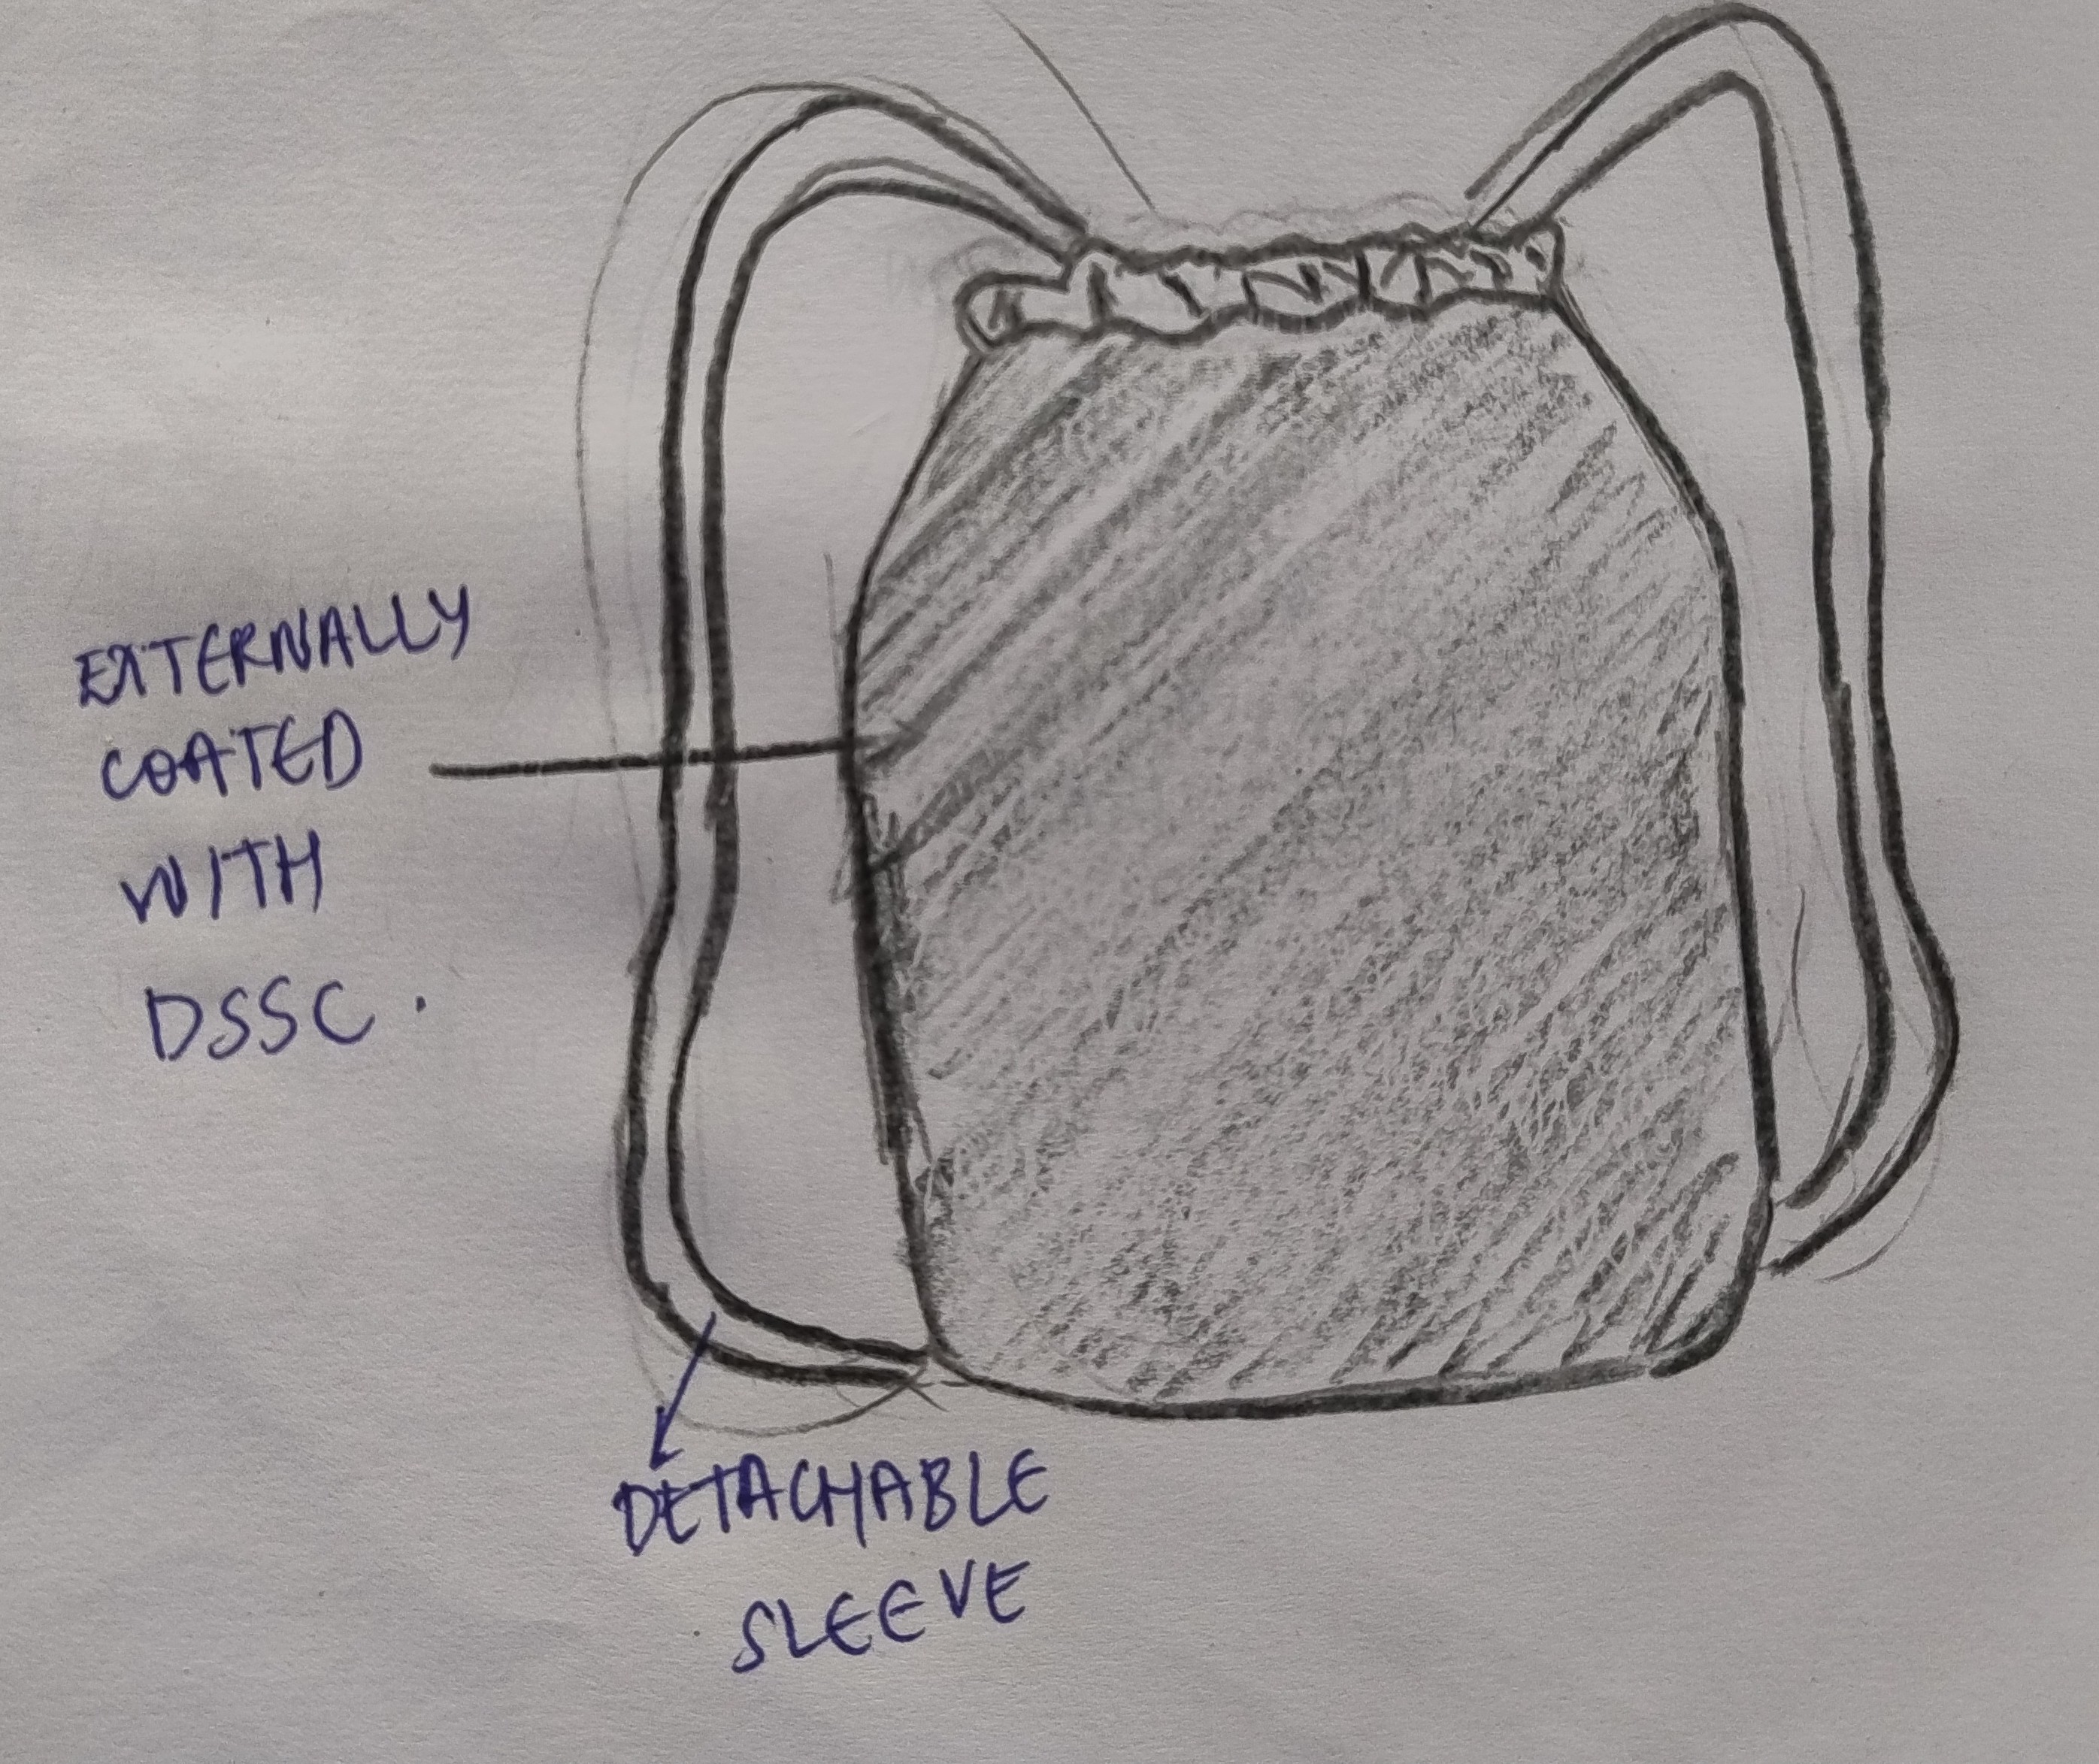 EXTERNALLY
COATED
WITH
DSSC.
DETACHABLE
SLEEVE